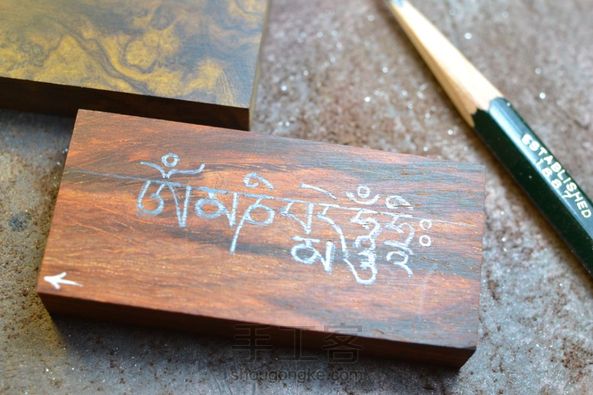 ཨོཾམཎིཔདྨེཧཱུྃཧྲཱིཿ
ESTABLISHED
1887
手工客
shougongke.com